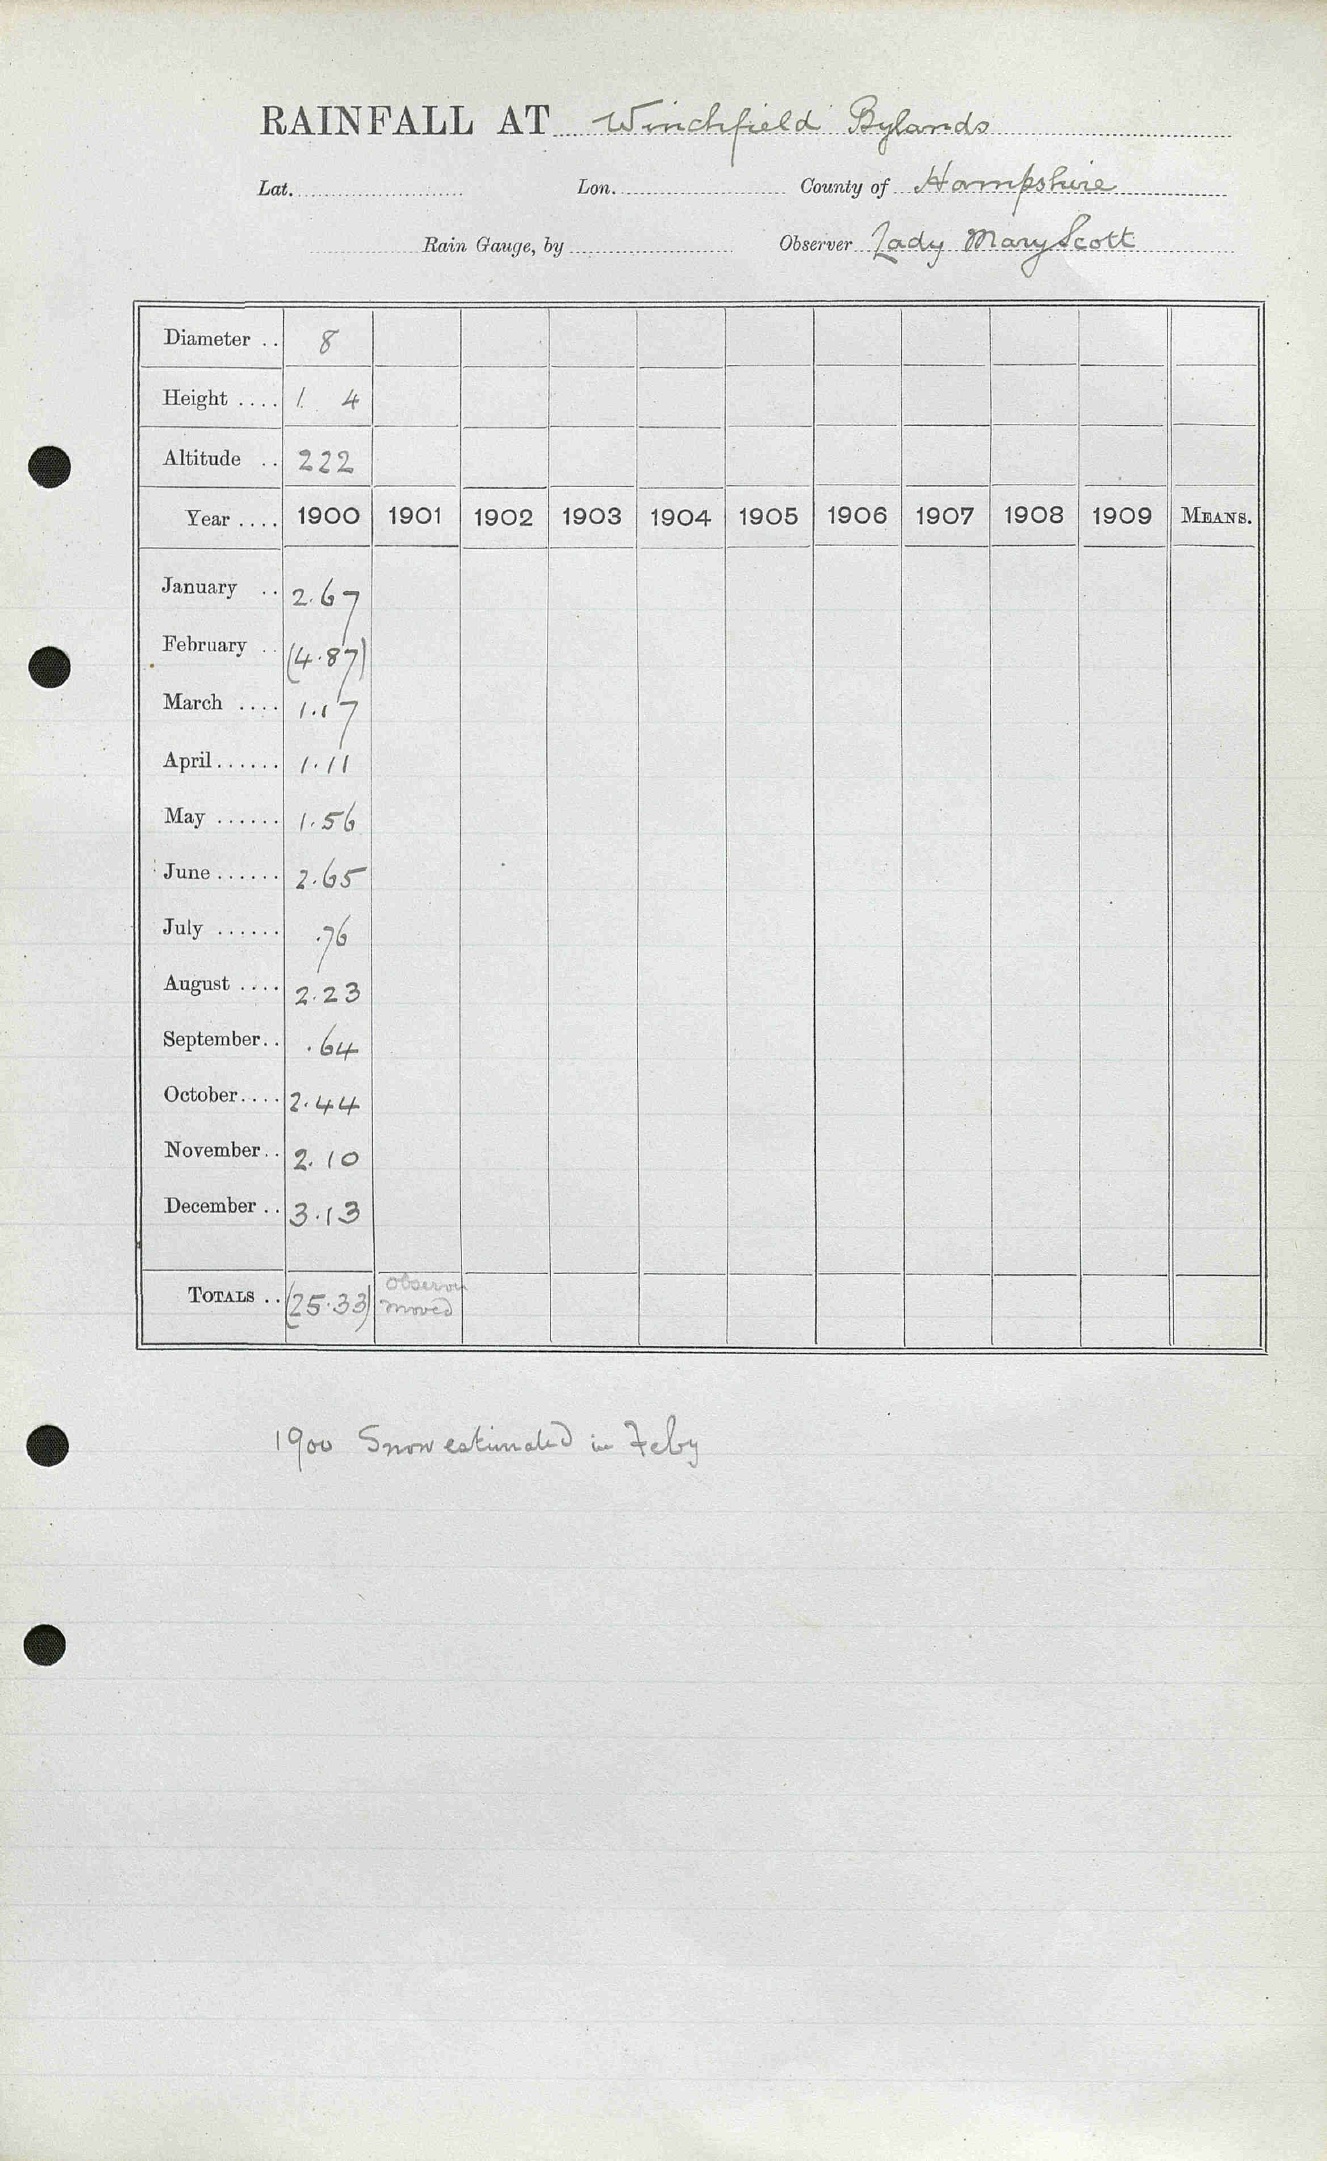 RAINFALL AT Winchfield Bylands
Lat. Lon. County of Hampshire
Rain Gauge, by Observer Lady Mary Scott
Diameter .. 8
Height .... 1. 4
Altitude .. 222
Year .... 1900 1901 1902 1903 1904 1905 1906 1907 1908 1909 MEANS.
January .. 2.67
February .. (4.87)
March .... 1.17
April ...... 1.11
May ...... 1.56
June ...... 2.65
July ...... .76
August .... 2.23
September .. .64
October .... 2.44
November .. 2.10
December .. 3.13
TOTALS .. (25.33) Observer
moved
1900 Snow estimated in Feby